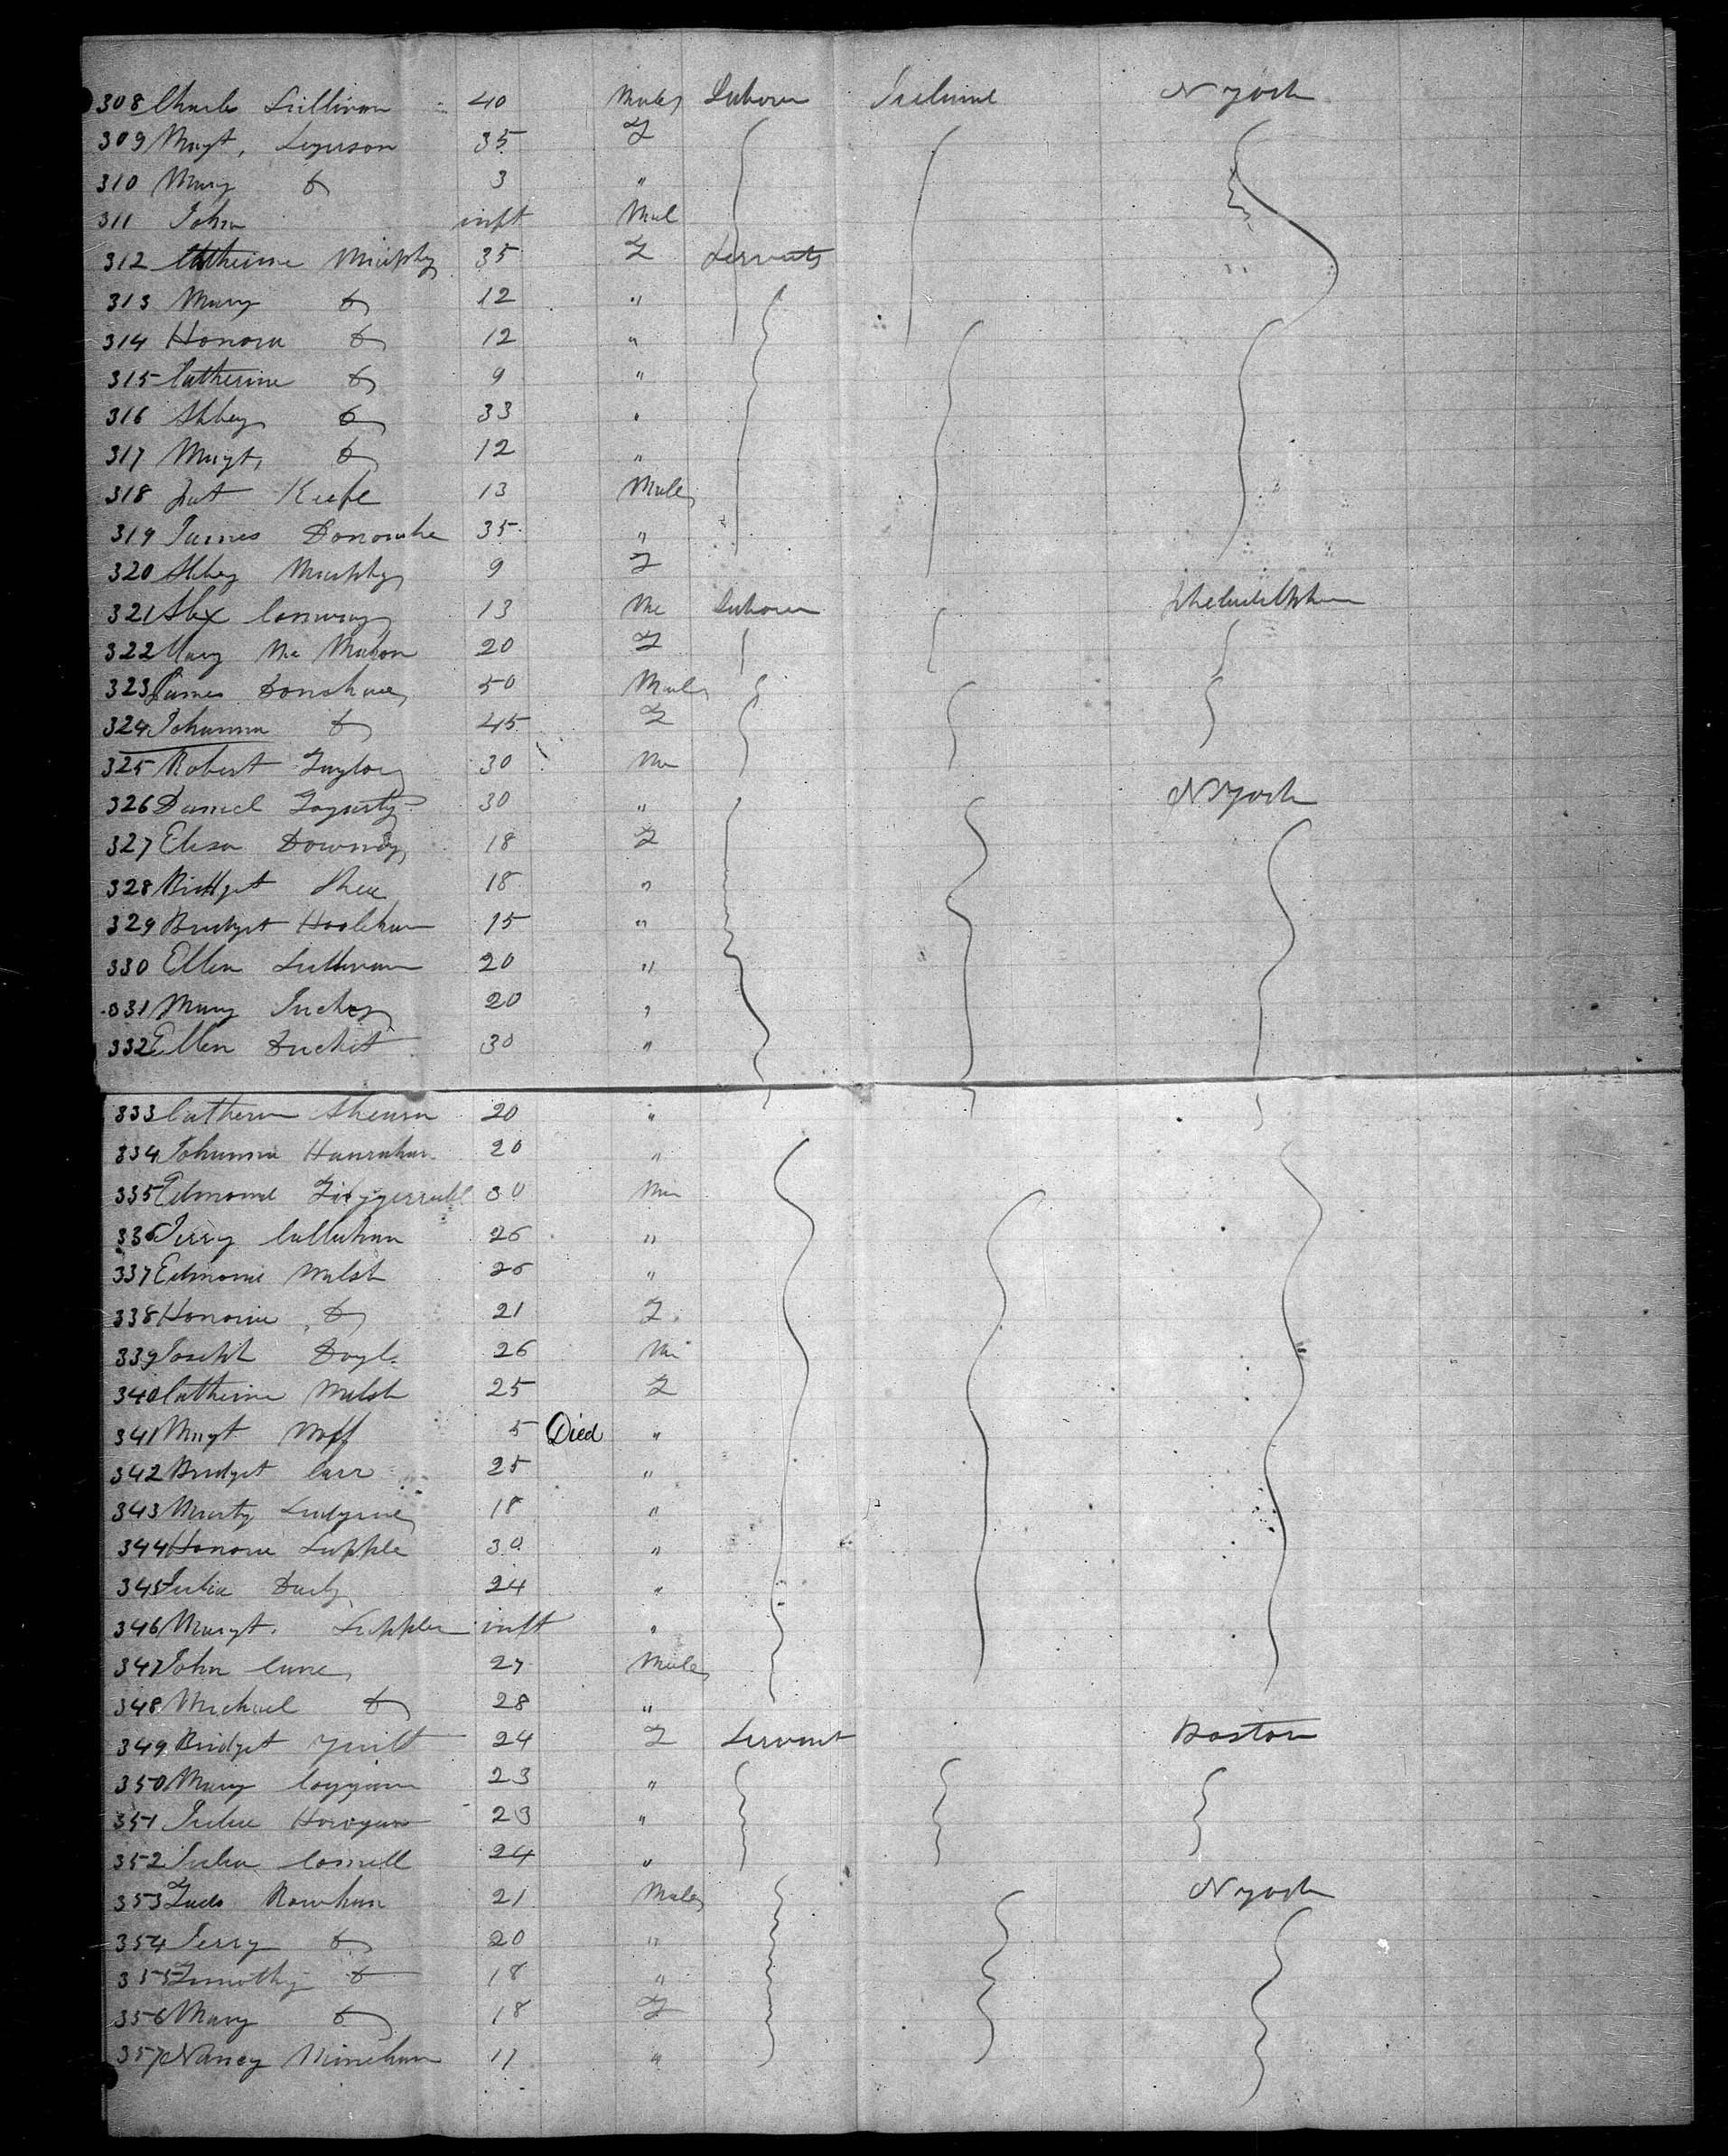 308 Charles Sullivan 40 Male Labourer Ireland N York
309 Margt. 35 F
310 Mary Do 3 "
311 John inft Mal
312 Catherine Murphy 35 F Servants
313 Mary Do 12 "
314 Honora Do 12 "
315 Catherine Do 9 "
316 Abbey Do 33 "
317 Margt. Do 12 "
318 Pat Keefe 13 Male
319 James Donoughe 35 "
320 Abbey Murphy 9 F
321 Alex Conway 13 Ma Labourer Pheladelphia
322 Mary Mc Mahon 20 F
323 James Donohue 50 Male
324 Johanna Do 45 F
325 Robert Taylor 30 Ma
326 Daniel Fogarty 30 " N York
327 Elisa Downey 18 F
328 Bridget Shea 18 "
329 Bridget Hoolihan 15 "
330 Ellen Sullivan 20 "
331 Mary 20 "
332 Ellen Ducket 30 "
333 Catherin Ahearn 20 "
334 Johanna Hanrahan 20 "
335 Edmond Fitzgerrald 30 Ma
336 Jerry Callahan 26 "
337 Edmond Walsh 26 "
338 Honora Do 21 F
339 Joseph Doyle 26 Ma
340 Catherine Walsh 25 F
341 Margt 5 Died "
342 Bridget Carr 25 "
343 18 "
344 Honora Supple 30 "
345 Julia Daly 24 "
346 Margt. Supple inft "
347 John Cane 27 Male
348 Michael Do 28 "
349 Bridget 24 F Servant Boston
350 Mary Coggan 23 "
351 Julia Horogan 23 "
352 Julia Connell 24 "
353 Rowhan 21 Male N York
354 Jerry Do 20 "
355 Timothy Do 18 "
356 Mary Do 18 F
357 Nancy Minehan 17 "